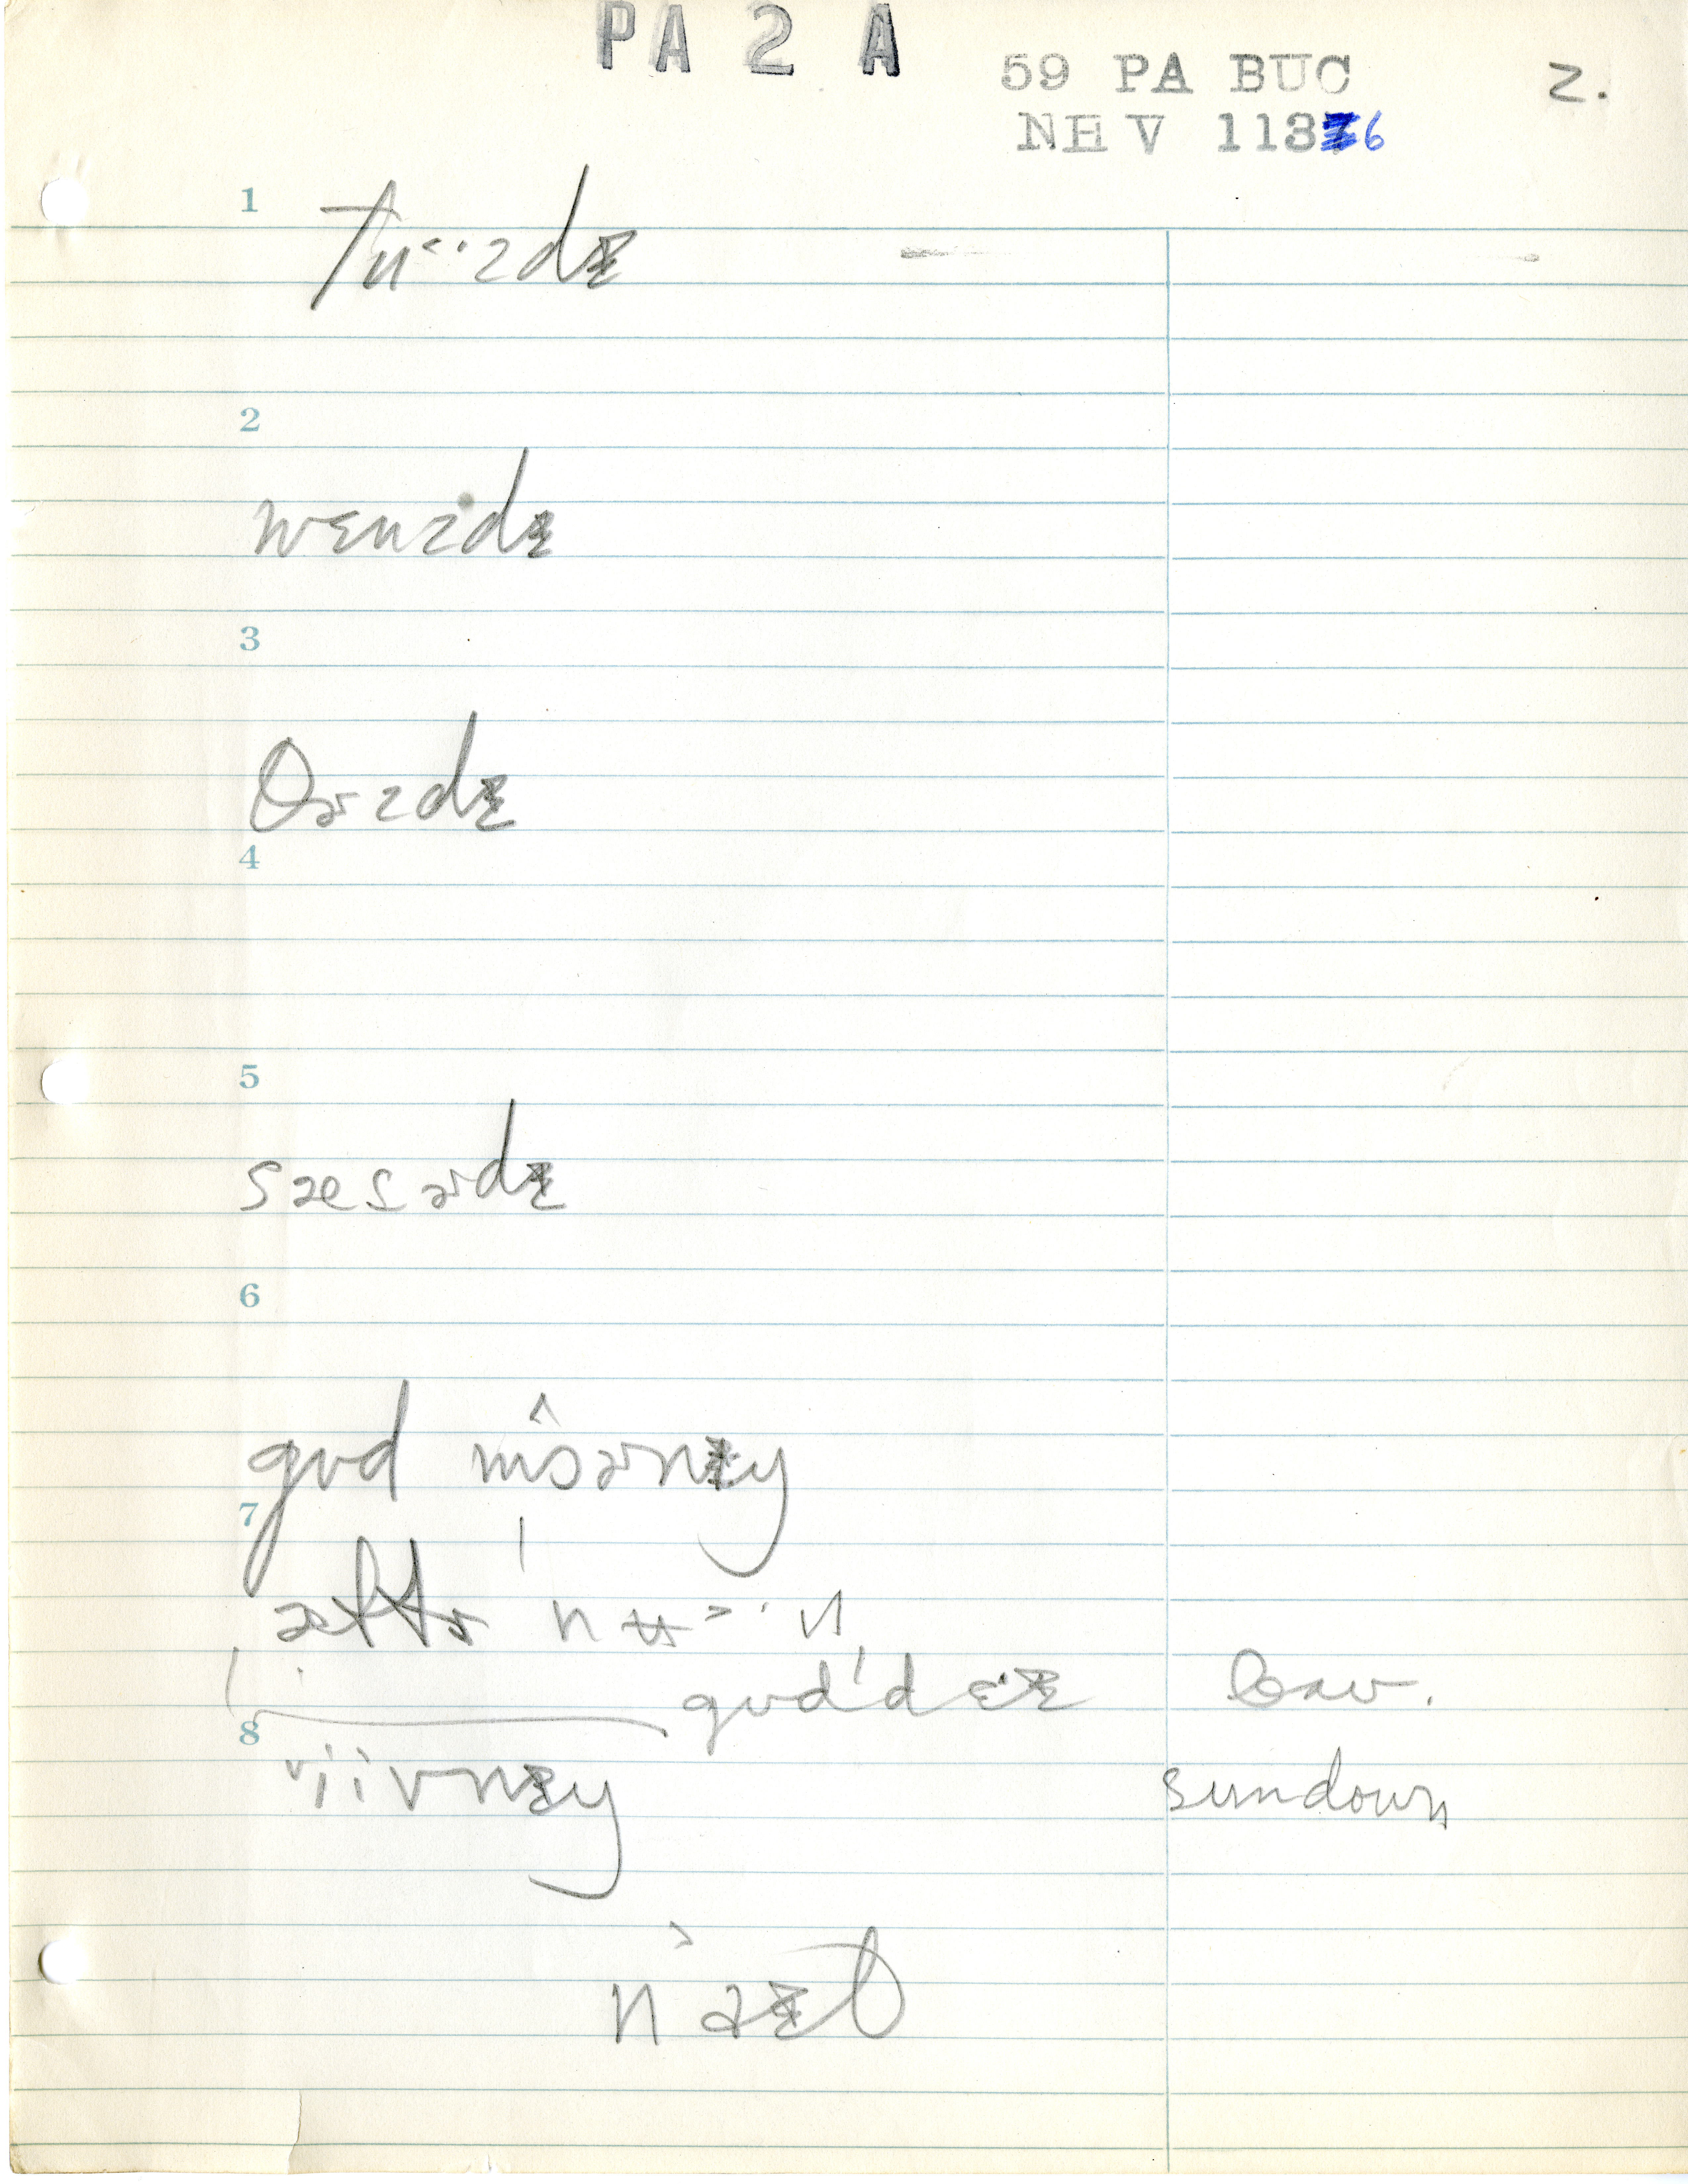 PA 2 A
59 PA BUC
NEV 1136 2.
1
tu˂·zdɪ
2
wɛnzdɪ
3
θɚzdɪ
4
5
sæsɚdɪ
6
gʊd mɔɚnɪŋ
7
æftɚ nʉ˃·n
gʊd'dɛ·ɪ
8
sundown
n a˃ɪt